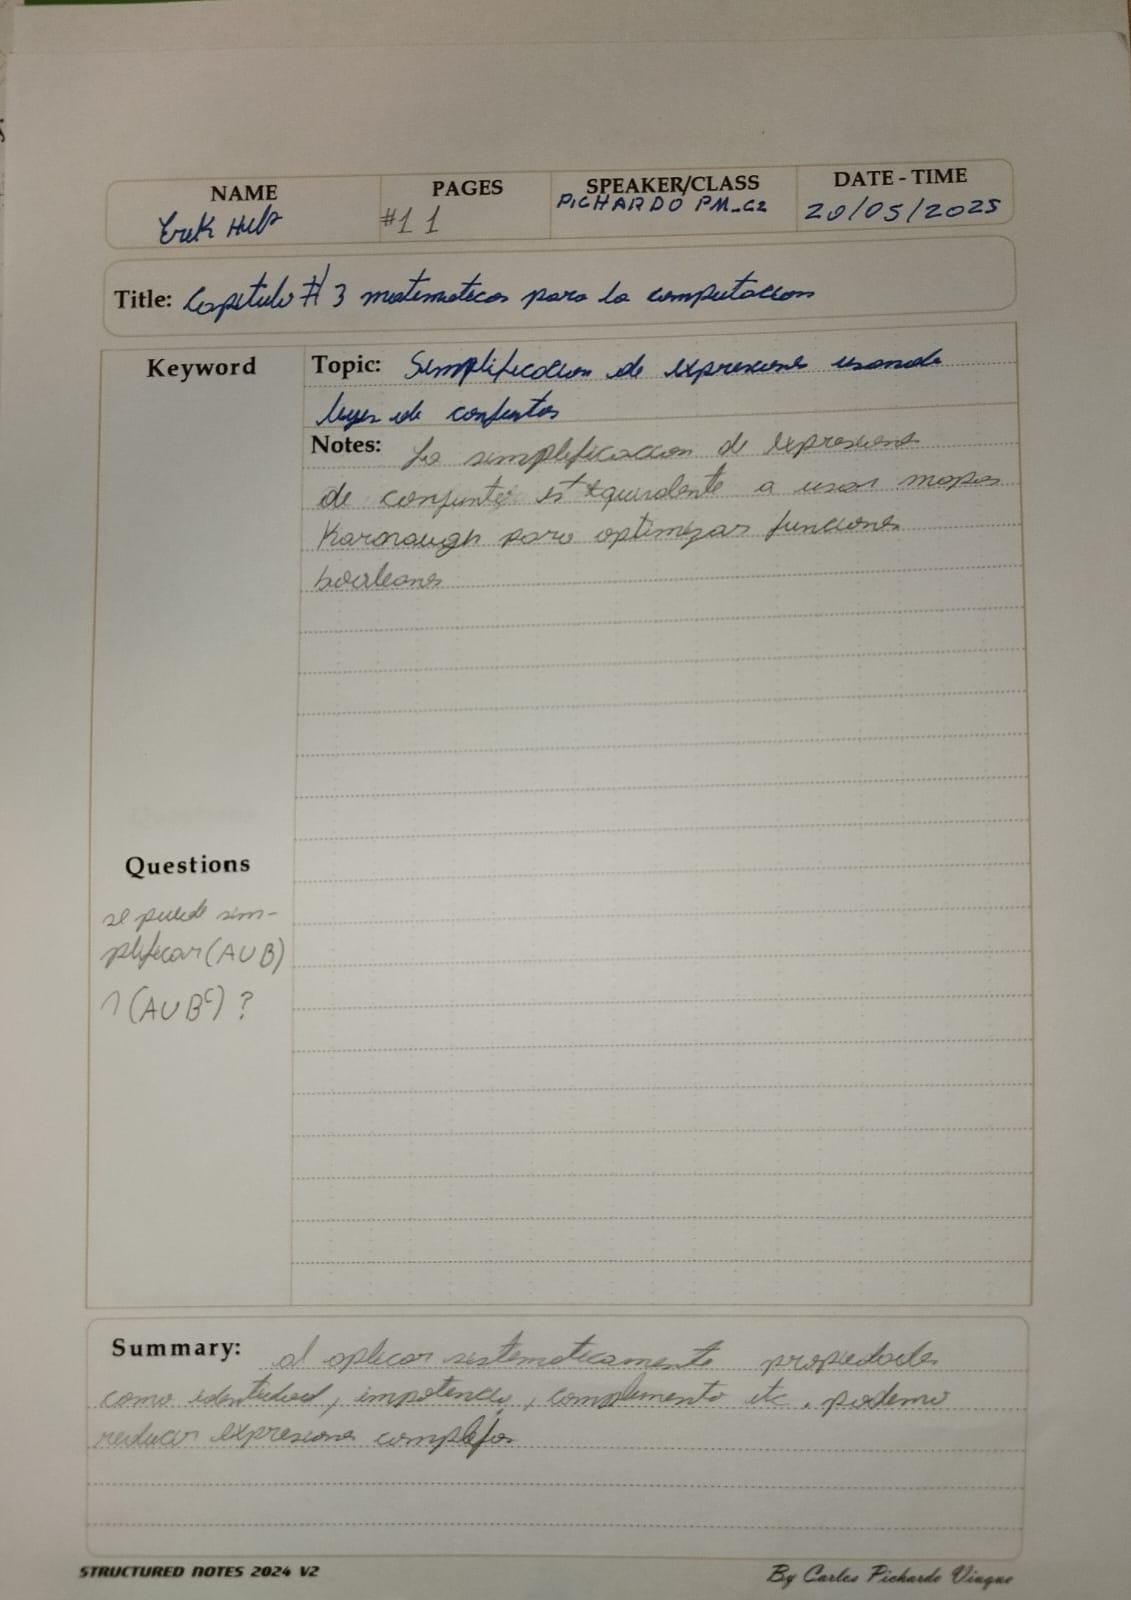 NAME
PAGES
SPEAKER/CLASS
DATE - TIME
Erik
#1 1
PICHARDO PM_C2
20/05/2025
Title: Capitulo # 3 matematicas para la computacion
Keyword
Topic: Simplificacion de expresiones usando
leyes de conjuntos
Notes: La simplificacion de expresiones
de conjuntos es equivalente a usar mapas
Karnaugh para optimizar funciones
booleanas
Questions
se puede sim-
plificar (A∪B)
∩(A∪Bᶜ) ?
Summary: al aplicar sistematicamente propiedades
como identidad, impotencia, complemento etc. podemo
reducir expresiones complejas
STRUCTURED NOTES 2024 V2
By Carlos Pichardo Viuque